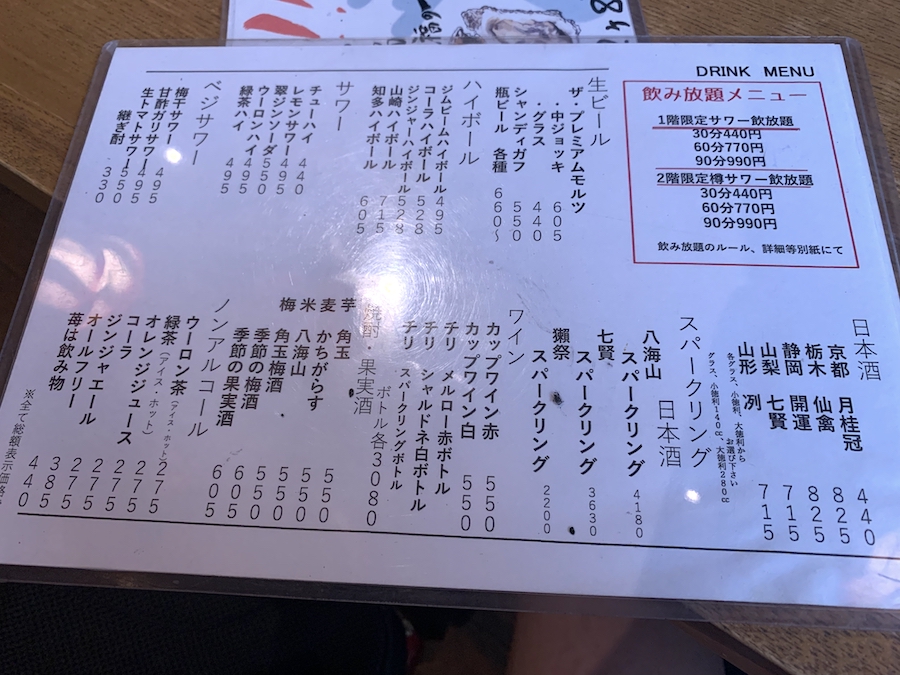 DRINK MENU
飲み放題メニュー
1階限定サワー飲放題
30分440円
60分770円
90分990円
2階限定樽サワー飲放題
30分440円
60分770円
90分990円
飲み放題のルール、詳細等別紙にて
生ビール
ザ・プレミアムモルツ
・中ジョッキ 605
・グラス 440
シャンディガフ 550
瓶ビール 各種 660～
ハイボール
ジムビームハイボール 495
コーラハイボール 528
ジンジャーハイボール 528
山崎ハイボール 715
知多ハイボール 605
サワー
チューハイ 440
レモンサワー 495
翠ジンソーダ 550
ウーロンハイ 495
緑茶ハイ 495
ベジサワー
梅干サワー 495
甘酢ガリサワー 495
生トマトサワー 550
継ぎ酌 330
日本酒
京都 月桂冠 440
栃木 仙禽 825
静岡 開運 825
山梨 七賢 715
山形 冽 715
各グラス、小徳利、大徳利から
お選び下さい
グラス、小徳利140cc、大徳利280cc
スパークリング日本酒
八海山
スパークリング 4180
七賢
スパークリング 3630
獺祭
スパークリング 2200
ワイン
カップワイン赤 550
カップワイン白 550
チリ メルロー赤ボトル
チリ シャルドネ白ボトル
チリ スパークリングボトル
ボトル各3080
焼酎・果実酒
芋 角玉 550
麦 かちがらす 440
米 八海山 550
梅 角玉梅酒 550
季節の梅酒 605
季節の果実酒 605
ノンアルコール
ウーロン茶 275
緑茶(アイス・ホット) 275
オレンジジュース 275
コーラ 275
ジンジャエール 275
オールフリー 385
苺は飲み物 440
※全て総額表示価格